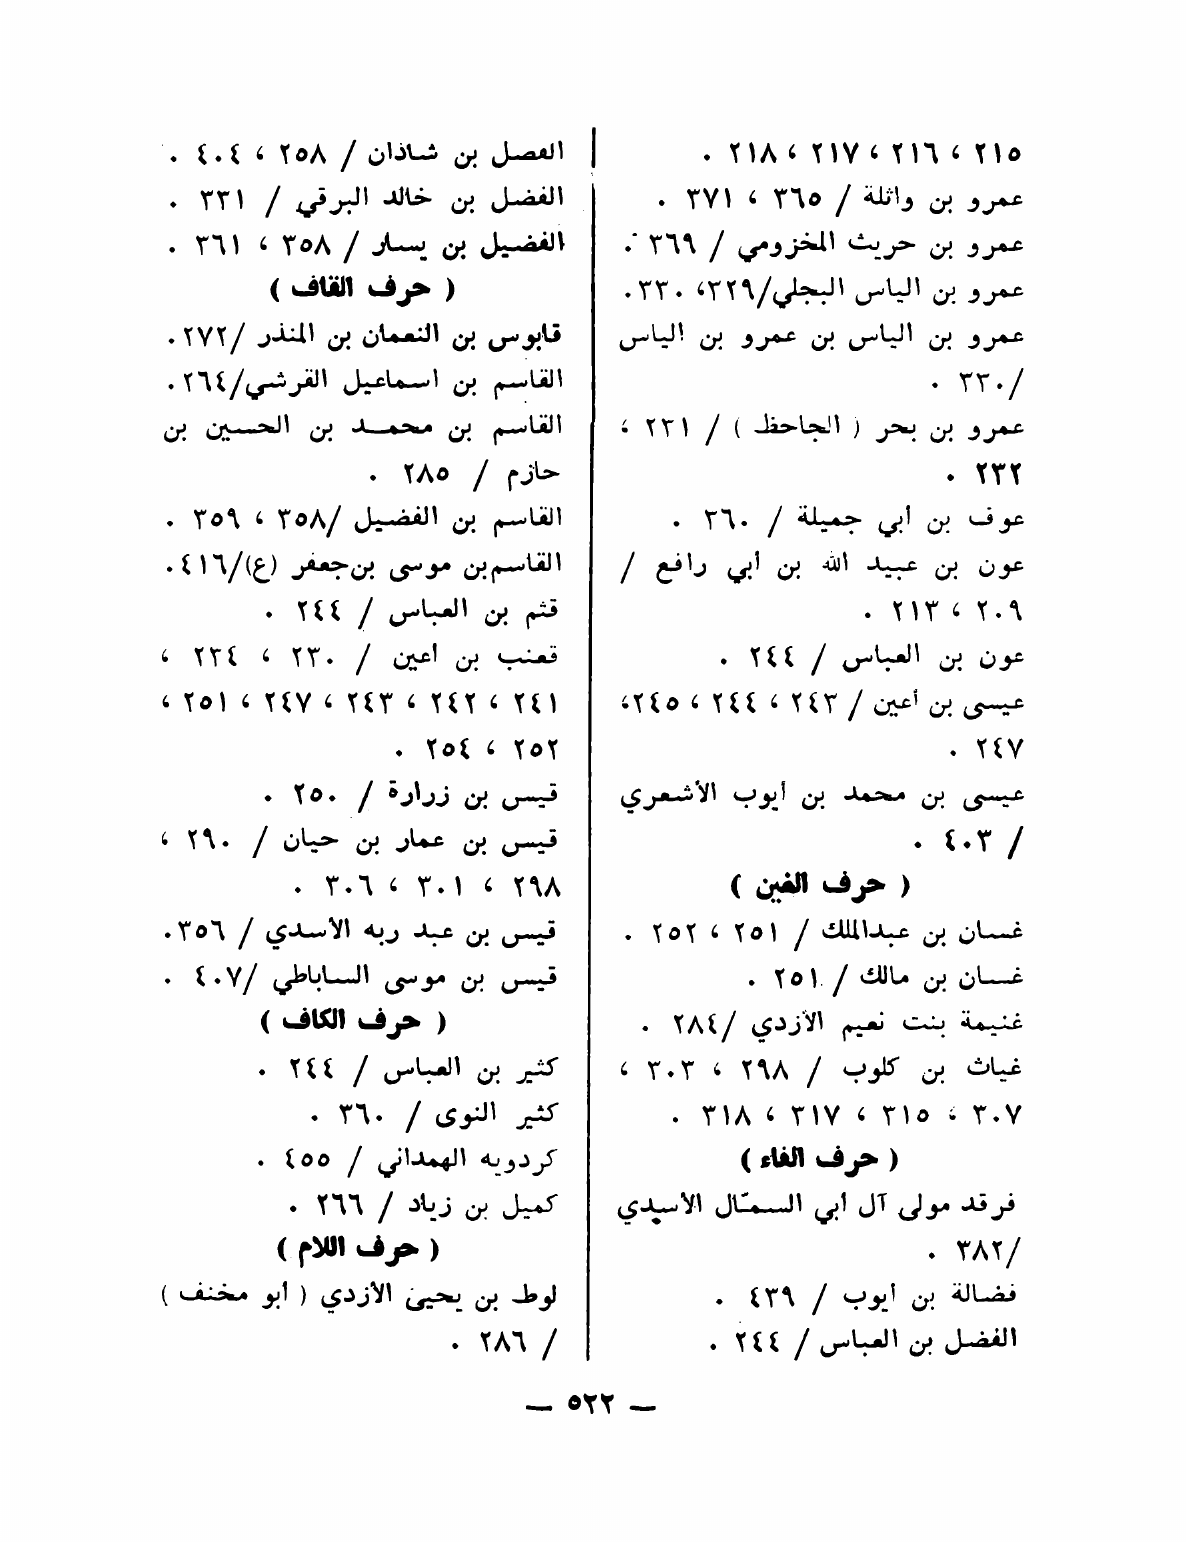 ٢١٥ ، ٢١٦ ، ٢١٧ ، ٢١٨ .
عمرو بن واثلة / ٣٦٥ ، ٣٧١ .
عمرو بن حريث المخزومي / ٣٦٩ .
عمرو بن الياس البجلي/٢٢٩، ٣٣٠.
عمرو بن الياس بن عمرو بن الياس
/٣٣٠ .
عمرو بن بحر ( الجاحظ ) / ٢٣١ ،
٢٣٢ .
عوف بن أبي جميلة / ٣٦٠ .
عون بن عبيد الله بن أبي رافع /
٢٠٩ ، ٢١٣ .
عون بن العباس / ٢٤٤ .
عيسى بن أعين / ٢٤٣ ، ٢٤٤ ، ٢٤٥،
٢٤٧ .
عيسى بن محمد بن أيوب الأشعري
/ ٤٠٣ .
( حرف الغين )
غسان بن عبدالملك / ٢٥١ ، ٢٥٢ .
غسان بن مالك / ٢٥١ .
غنيمة بنت نعيم الأزدي /٢٨٤ .
غياث بن كلوب / ٢٩٨ ، ٣٠٣ ،
٣٠٧ ، ٣١٥ ، ٣١٧ ، ٣١٨ .
( حرف الفاء )
فرقد مولى آل أبي السمّال الأسيدي
/٣٨٢ .
فضالة بن أيوب / ٤٣٩ .
الفضل بن العباس / ٢٤٤ .
الفصل بن شاذان / ٢٥٨ ، ٤٠٤ .
الفضل بن خالد البرقي / ٣٣١ .
الفضيل بن يسار / ٣٥٨ ، ٣٦١ .
( حرف القاف )
قابوس بن النعمان بن المنذر /٢٧٢.
القاسم بن اسماعيل القرشي/٢٦٤.
القاسم بن محمد بن الحسين بن
حازم / ٢٨٥ .
القاسم بن الفضيل /٣٥٨ ، ٣٥٩ .
القاسم بن موسى بن جعفر (ع)/٤١٦.
قثم بن العباس / ٢٤٤ .
قعنب بن أعين / ٢٣٠ ، ٢٣٤ ،
٢٤١ ، ٢٤٢ ، ٢٤٣ ، ٢٤٧ ، ٢٥١ ،
٢٥٢ ، ٢٥٤ .
قيس بن زرارة / ٢٥٠ .
قيس بن عمار بن حيان / ٢٩٠ ،
٢٩٨ ، ٣٠١ ، ٣٠٦ .
قيس بن عبد ربه الأسدي / ٣٥٦.
قيس بن موسى الساباطي /٤٠٧ .
( حرف الكاف )
كثير بن العباس / ٢٤٤ .
كثير النوى / ٣٦٠ .
كردويه الهمداني / ٤٥٥ .
كميل بن زياد / ٢٦٦ .
( حرف اللام )
لوط بن يحيى الأزدي ( أبو مخنف )
/ ٢٨٦ .
— ٥٢٢ —